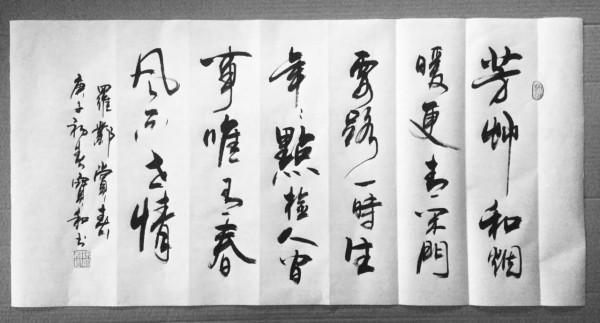 芳艸和烟
暖更青閒門
要路一時生
年々點檢人間
事唯有春
風不世情
羅鄴賞春
庚子初春寶和書